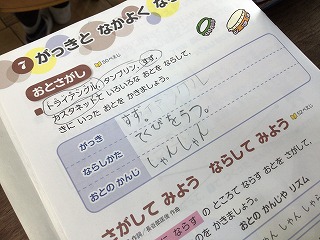 7 がっきと なかよく な
おとさがし
50ページ
トライアングル、タンブリン、すず、
カスタネットで いろいろな おとを ならして、
きに いった おとを かきましょう。
がっき すず。
ならしかた てくびをうつ。
おとの かんじ しゃんしゃん
50ページ
さがして みよう ならして みよう
作詞／長谷部匡俊 作曲
ならす のところで ならす おとを さがして、
のかきましょう。
おとの かんじや リズム
しゃん しゃん しゃん